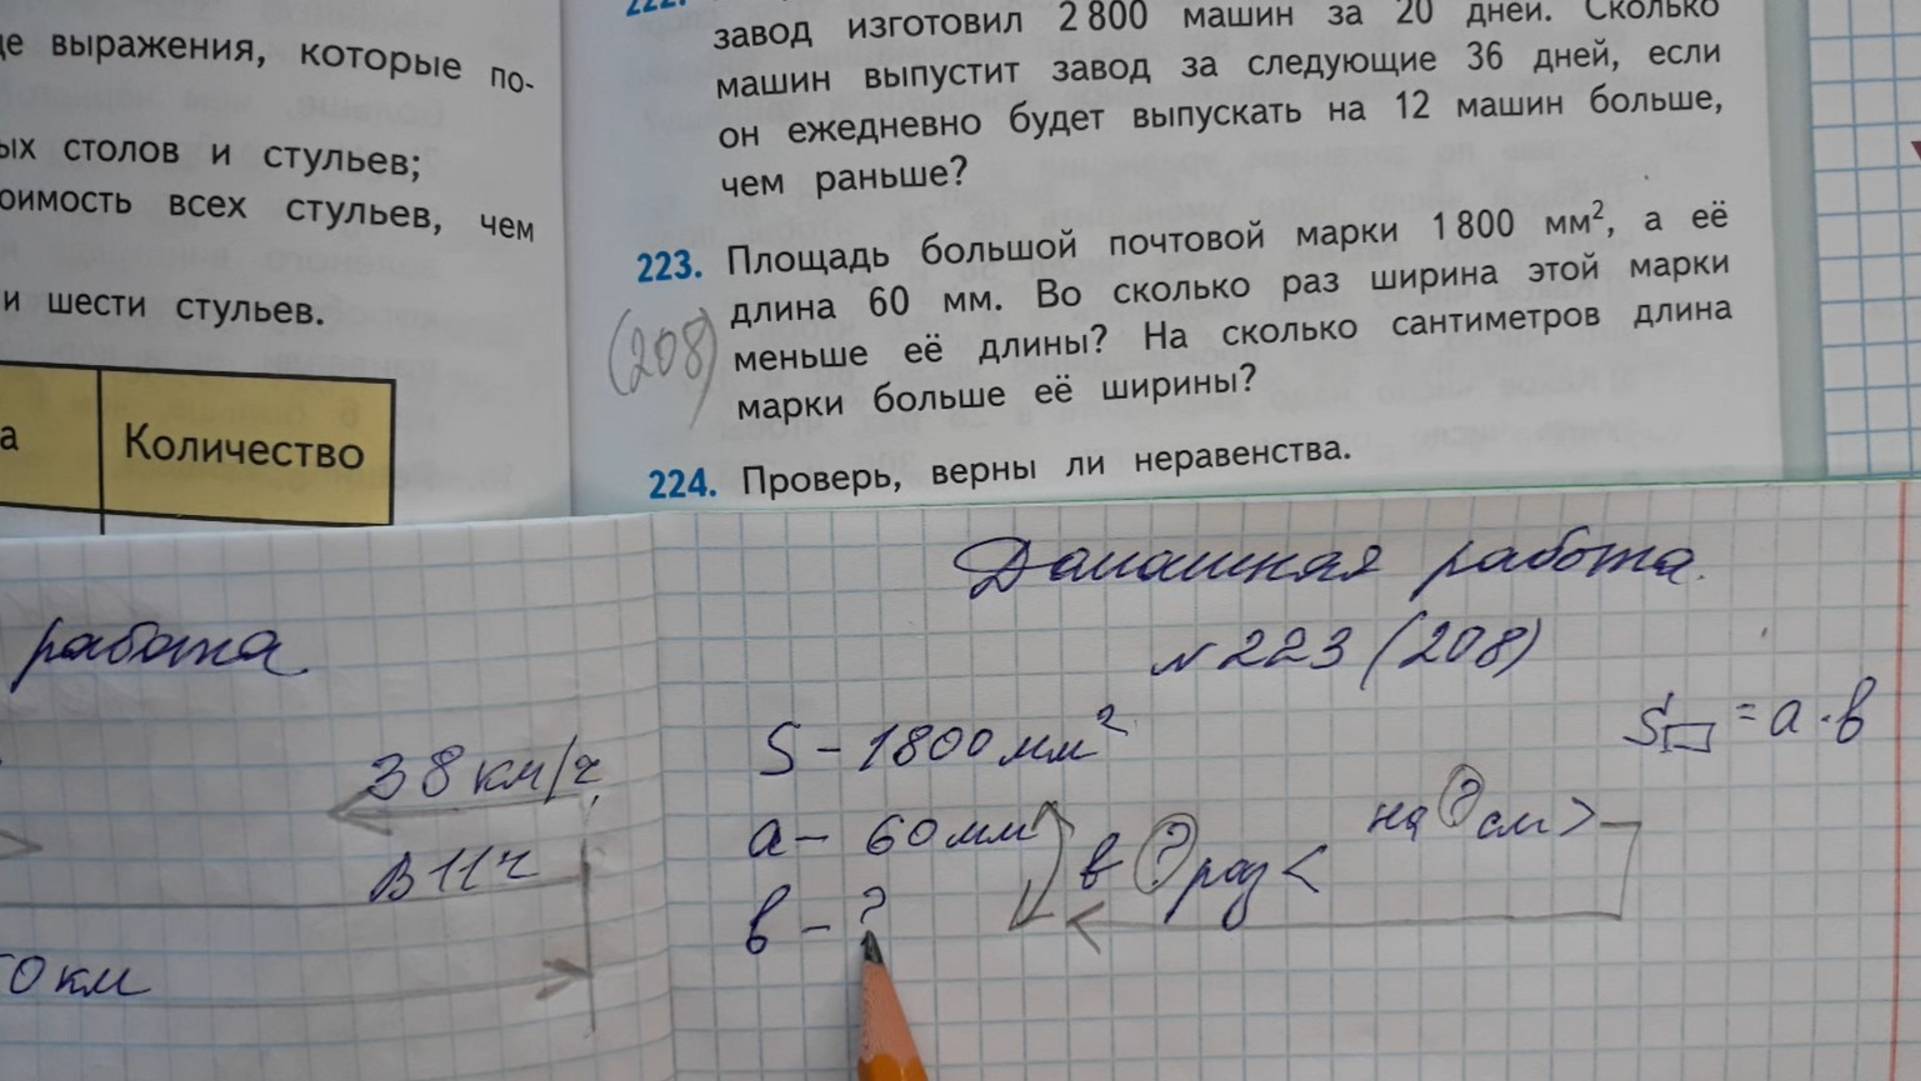 де выражения, которые по-
ых столов и стульев;
оимость всех стульев, чем
и шести стульев.
а Количество
222.
завод изготовил 2 800 машин за 20 дней. Сколько
машин выпустит завод за следующие 36 дней, если
он ежедневно будет выпускать на 12 машин больше,
чем раньше?
223. Площадь большой почтовой марки 1 800 мм², а её
(208) длина 60 мм. Во сколько раз ширина этой марки
меньше её длины? На сколько сантиметров длина
марки больше её ширины?
224. Проверь, верны ли неравенства.
работа.
38 км/ч
в 11 ч
0 км
Домашняя работа.
№ 223 (208)
S – 1800 мм²
S▭ = a · b
a – 60 мм
в ? раз <
на ? см >
b – ?